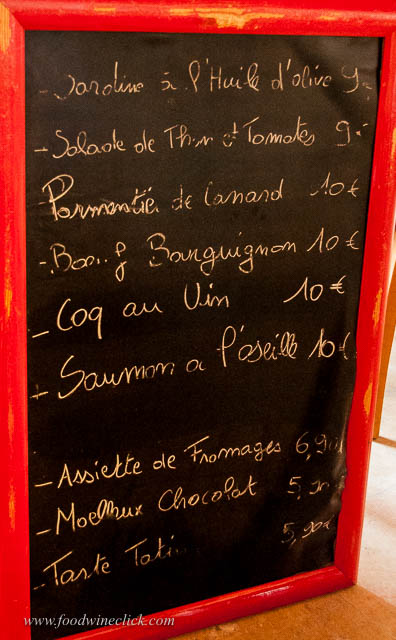 - Sardine à l'Huile d'olive 9
- Salade de Thon et Tomates 9€
Parmentie de Canard 10€
- Bourguignon 10€
- Coq au Vin 10€
- Saumon a l'oseille 10€
- Assiette de Fromages 6,90
- Moelleux Chocolat 5,90€
- Tarte Tatin 5,90€
www.foodwineclick.com